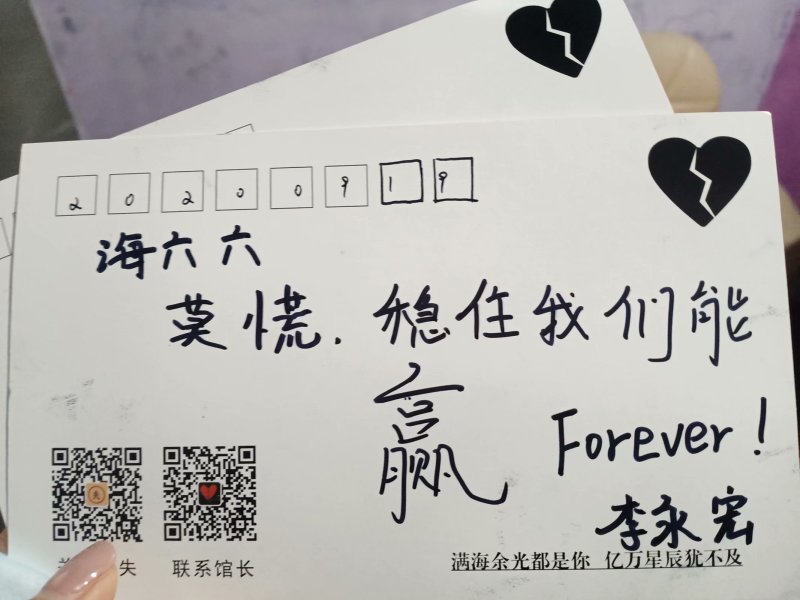 20200919
海六六
莫慌.稳住我们能
赢
Forever!
李永宏
失
联系馆长
满海余光都是你 亿万星辰犹不及